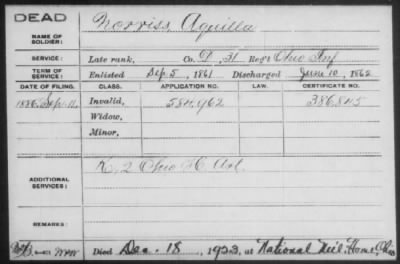 DEAD
Norriss, Aquilla
NAME OF SOLDIER:
SERVICE: Late rank, Co. D, 31 Reg't Ohio Inf
TERM OF SERVICE: Enlisted Sep. 5, 1861 Discharged June 10, 1862
DATE OF FILING. CLASS. APPLICATION NO. LAW. CERTIFICATE NO.
1886, Sep. 11, Invalid, 584,962 386,845
Widow,
Minor,
ADDITIONAL SERVICES: K, 2 Ohio H. Art.
REMARKS:
Died Dec. 18, 1923, at National Mil. Home, Ohio